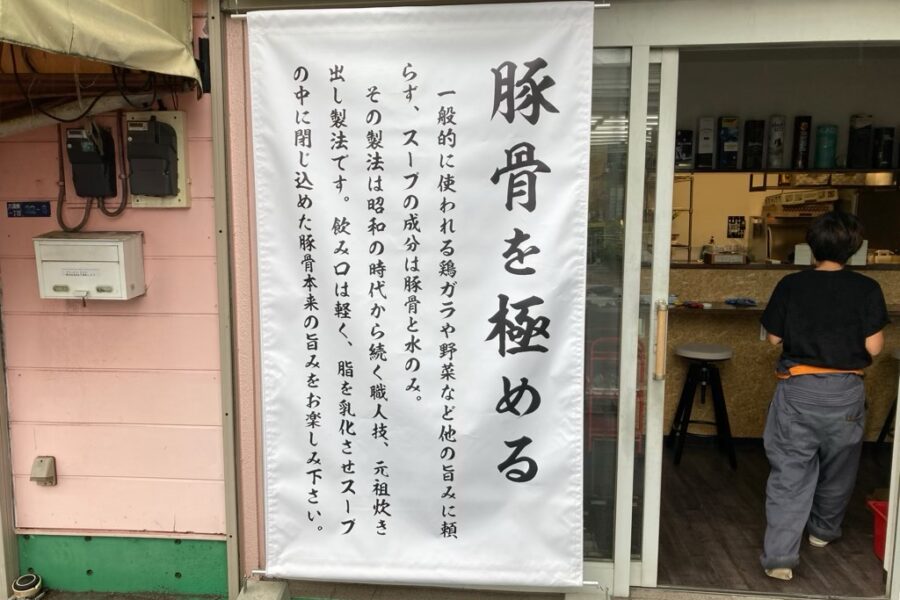 豚骨を極める
一般的に使われる鶏ガラや野菜など他の旨みに頼
らず、スープの成分は豚骨と水のみ。
その製法は昭和の時代から続く職人技、元祖炊き
出し製法です。飲み口は軽く、脂を乳化させスープ
の中に閉じ込めた豚骨本来の旨みをお楽しみ下さい。